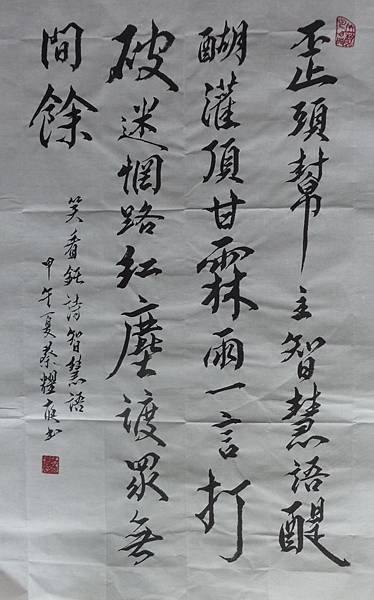 歪頭幫主智慧語醍
醐灌頂甘霖雨一言打
破迷惘路紅塵渡眾無
間餘
笑看鉦詩智慧語
甲午夏蔡耀書